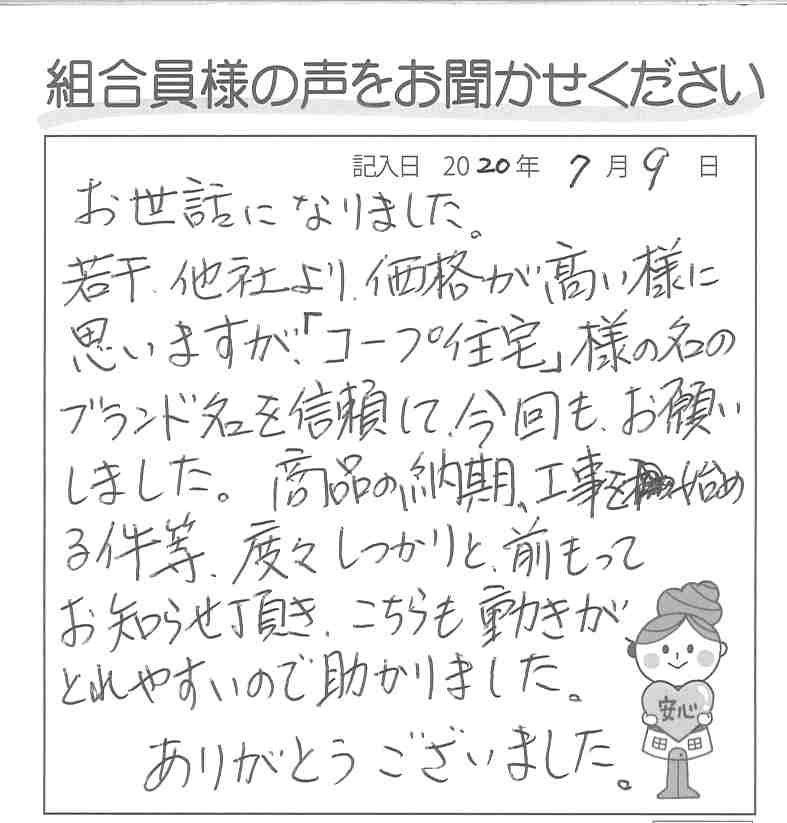 組合員様の声をお聞かせください
記入日 2020年 7月9日
お世話になりました。
若干、他社より、価格が高い様に
思いますが、「コープ住宅」様の名の
ブランド名を信頼して、今回も、お願い
しました。商品の納期、工事を始め
る件等、度々しっかりと、前もって
お知らせ頂き、こちらも動きが
とれやすいので助かりました。
ありがとうございました。
安心